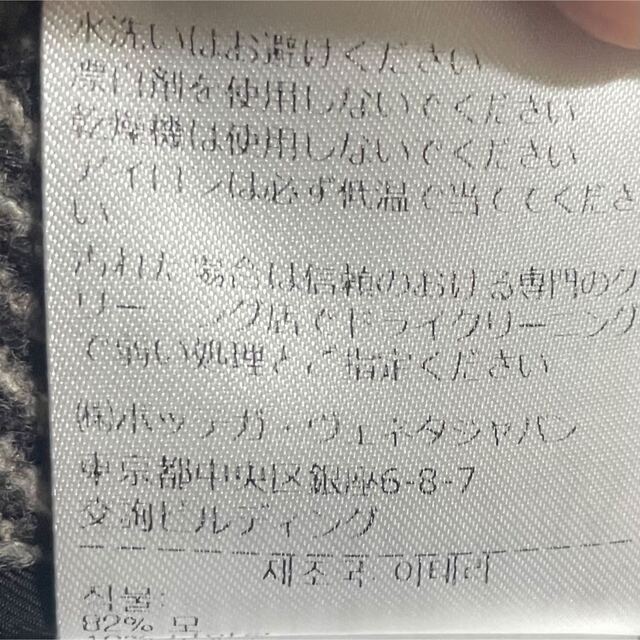 水洗いはお避けください
漂白剤を使用しないでください
乾燥機は使用しないでください
アイロンは必ず低温で当ててくださ
い
汚れた場合は信頼のおける専門のク
リーニング店でドライクリーニング
で弱い処理とご指定ください
(株)ボッテガ・ヴェネタジャパン
東京都中央区銀座6-8-7
交詢ビルディング
제조국: 이태리
직물:
82% 모